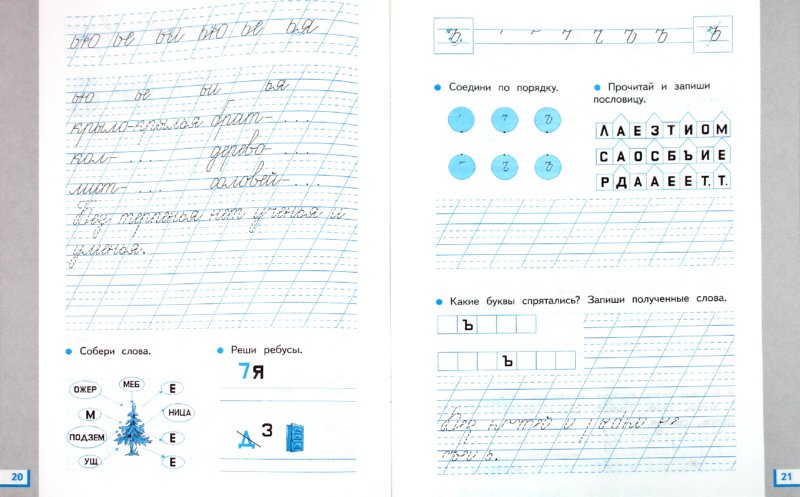 ью ье ьи ью ье ья
ью ье ьи ья
крыло-крылья брат- ...
кол- ... дерево- ...
лист- ... соловей- ...
Без терпенья нет ученья и
уменья.
Собери слова.
ОЖЕР МЕБ Е
М НИЦА
ПОДЗЕМ Е
УЩ Е
Реши ребусы.
7Я
Д З
20
ъ ъ ъ ъ ъ
Соедини по порядку.
ъ
ъ ъ
Прочитай и запиши
пословицу.
ЛАЕЗТИОМ
САОСБЪИЕ
РДААЕЕТ.Т.
Какие буквы спрятались? Запиши полученные слова.
Ъ
Ъ
Без и не
21